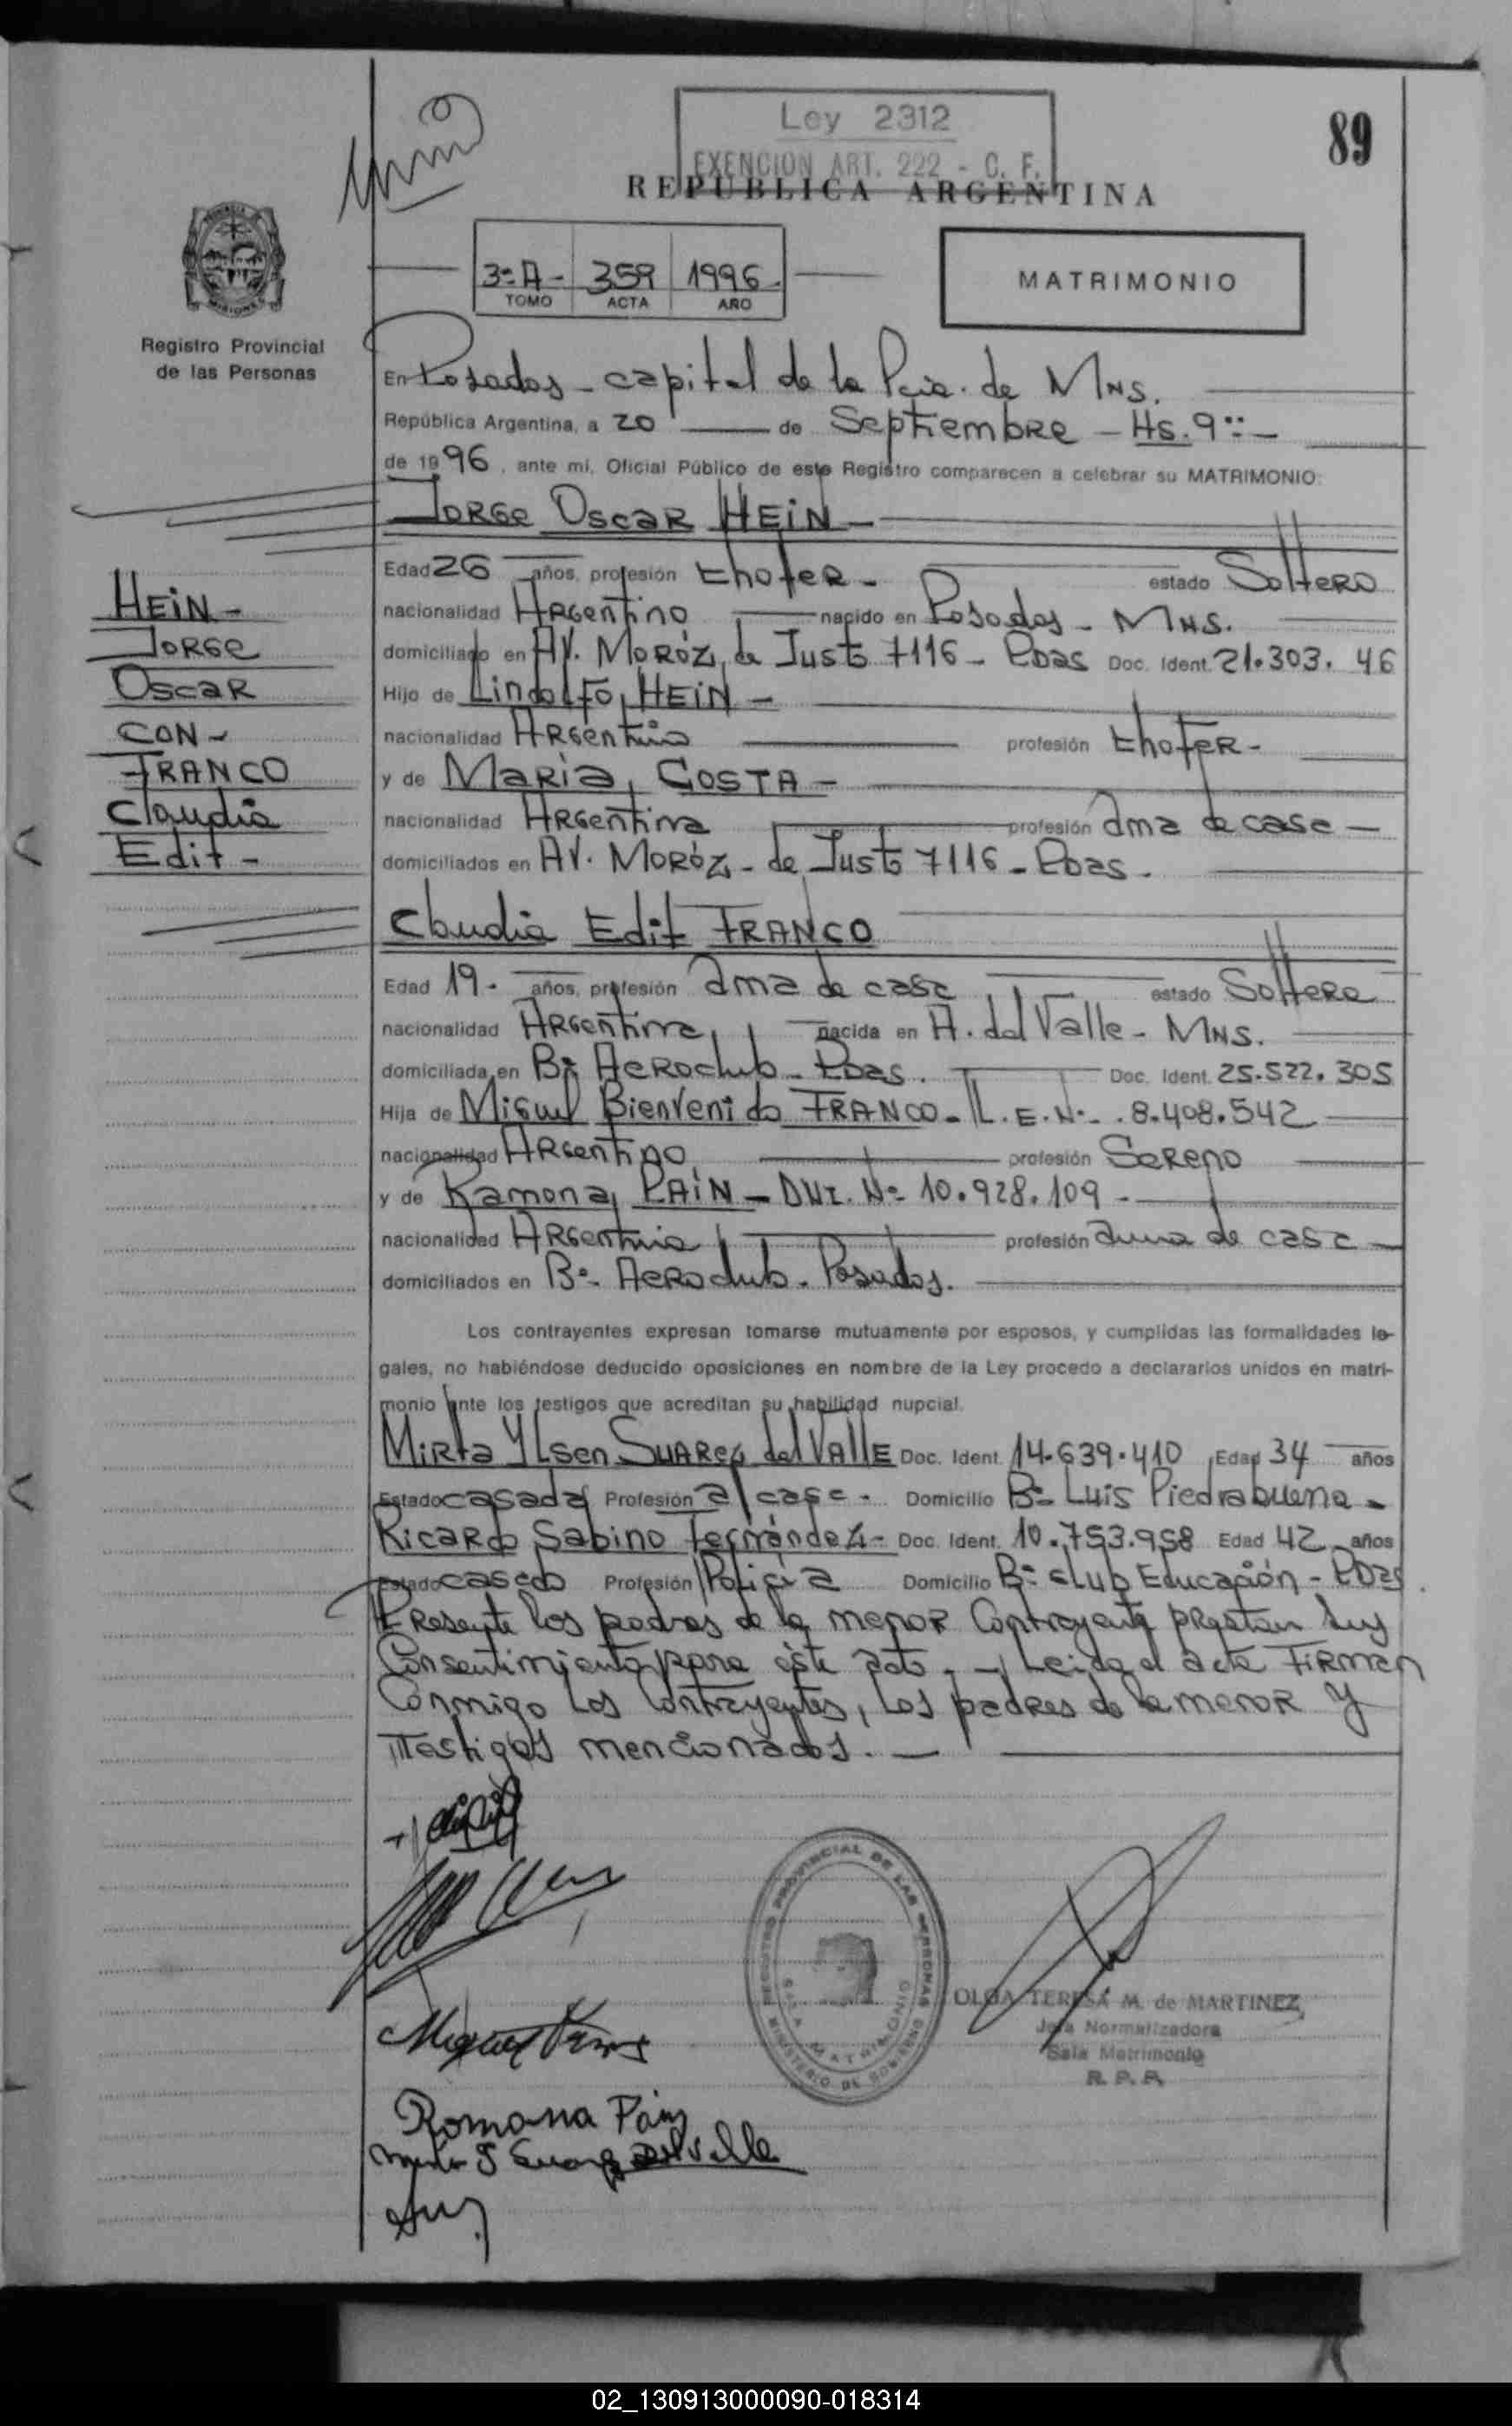 Ley 2312
EXENCION ART. 222 - C. F.
89
REPUBLICA ARGENTINA
3º A - 359 1996
TOMO ACTA AÑO
MATRIMONIO
Registro Provincial
de las Personas
En Posadas - capital de la Pcia. de MNS.
República Argentina, a 20 de Septiembre - Hs. 9
de 1996, ante mi, Oficial Público de este Registro comparecen a celebrar su MATRIMONIO:
Jorge Oscar HEIN -
Edad 26 años, profesión chofer - estado Soltero
nacionalidad Argentino nacido en Posadas - MNS.
domiciliado en AV. de Justo 7116 - Pdas Doc. Ident. 21.303. 46
Hijo de Lindolfo, HEIN -
nacionalidad Argentino profesión chofer -
y de Maria, COSTA -
nacionalidad Argentina profesión ama de casa -
domiciliados en AV. de Justo 7116 - Pdas -
HEIN -
Jorge
Oscar
CON -
FRANCO
Claudia
Edit -
Claudia Edit FRANCO
Edad 19 - años, profesión ama de casa estado Soltera
nacionalidad Argentina, nacida en A. del Valle - MNS.
domiciliada en Bº Aeroclub - Pdas. Doc. Ident. 25.522.305
Hija de Miguel Bienvenido FRANCO - L.E.Nº 8.408.542
nacionalidad Argentino profesión Sereno
y de Ramona, PAIN - DNI. Nº 10.928.109 -
nacionalidad Argentina profesión ama de casa -
domiciliados en Bº Aeroclub - Posadas.
Los contrayentes expresan tomarse mutuamente por esposos, y cumplidas las formalidades le-
gales, no habiéndose deducido oposiciones en nombre de la Ley procedo a declararlos unidos en matri-
monio ante los testigos que acreditan su habilidad nupcial.
Mirta Ylsen SUAREZ del VALLE Doc. Ident. 14.639.410 Edad 34 años
Estado casada Profesión a/casa - Domicilio Bº Luis Piedrabuena -
Ricardo Sabino Fernández - Doc. Ident. 10.753.958 Edad 42 años
Estado casado Profesión Policia Domicilio Bº Club Educación - Pdas.
Presente los padres de la menor Contrayente prestan sus
Consentimiento para éste acto. - Leida el acta Firman
Conmigo los Contrayentes, los padres de la menor y
Testigos mencionados. -
REGISTRO PROVINCIAL DE LAS PERSONAS
SALA MATRIMONIO
MINISTERIO DE GOBIERNO
OLGA TERESA M. de MARTINEZ
Jefa Normalizadora
Sala Matrimonio
R. P. P.
Miguel
Romana Pain
Suarez del Valle
02_130913000090-018314